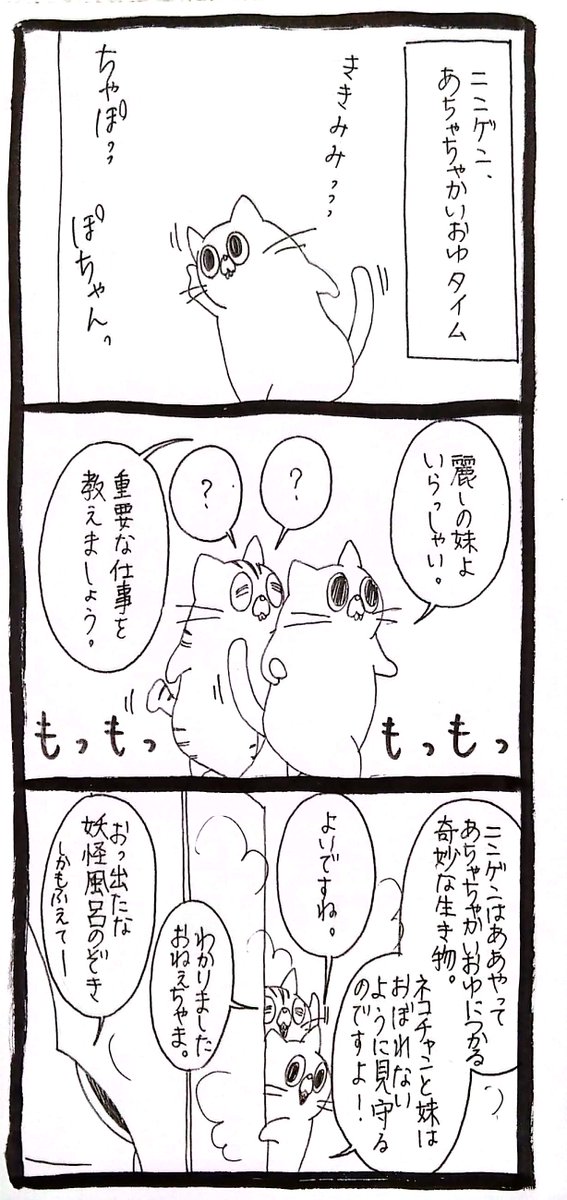 ニンゲン、
あちゃちゃかいおゆタイム
ききみみっっっ
ちゃぽっっ
ぽちゃんっ
麗しの妹よ
いらっしゃい。
?
?
重要な仕事を
教えましょう。
もっもっ
もっもっ
ニンゲンはああやって
あちゃちゃかいおゆにつかる
奇妙な生き物。
ネコチャンと妹は
おぼれない
ように見守る
のですよ!
よいですね。
わかりました
おねえちゃま。
おっ出たな
妖怪風呂のぞき
しかもふえてー